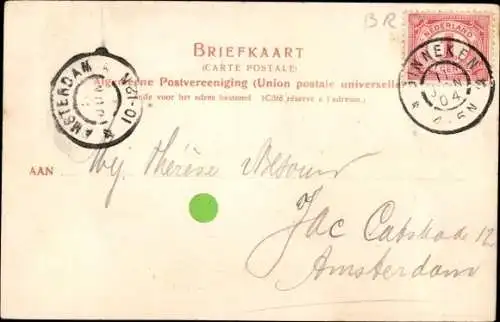 BR
NEDERLAND
BRIEFKAART
(CARTE POSTALE)
Algemeene Postvereeniging (Union postale universelle
de voor het adres bestemd (Côté réserve à l adresse)
AMSTERDAM
GINNEKEN
04
AAN Mej Thérèse
Jac Catskade 12
Amsterdam